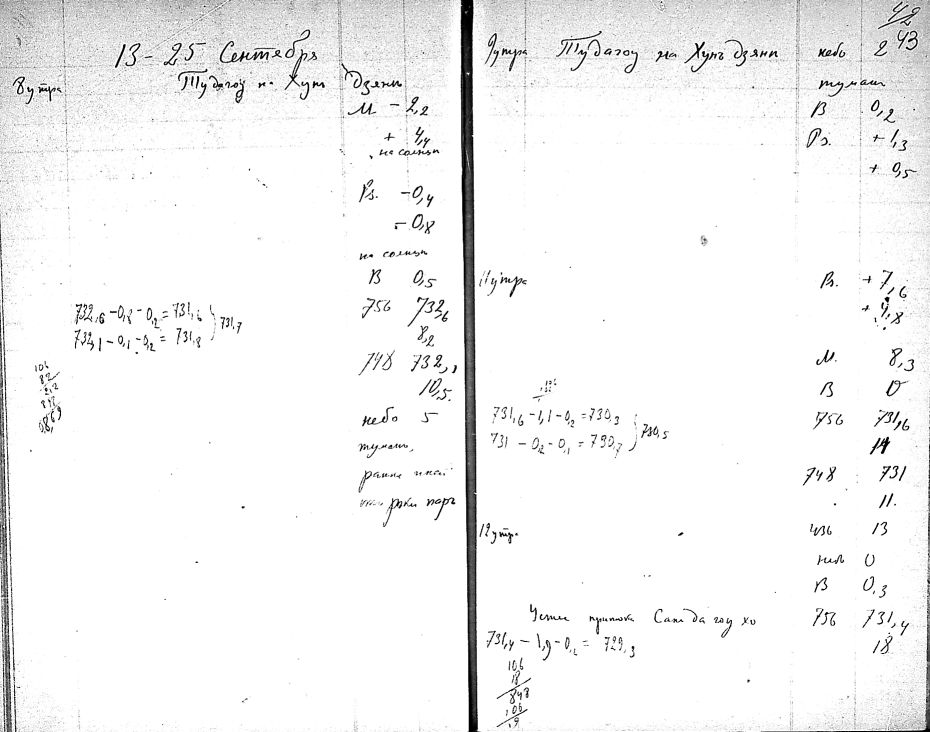 13-25 Сентября
8 утра Тудагоу на Хунь Дзянь
М -2,2
+ 4,4
на солнцѣ
Рз. -0,4
-0,8
на солнцѣ
В 0,5
732,6 -0,8 -0,2 = 731,6
732,1 -0,1 -0,2 = 731,8
731,7
756 732,6
8,2
748 732,1
10,5.
106
82
212
848
0,869
небо 5
туманъ,
ранни иней
рѣки паръ
42
43
9 утра Тудагоу на Хунъ дзянь небо 2
туманъ
В 0,2
Рз. +1,3
+ 0,5
11 утра Вз. +7,6
+ 4,8
М. 8,3
В 0
731,6 -1,1 -0,2 = 730,3
731 -0,2 -0,1 = 730,7
730,5
756 731,6
14
748 731
11.
12 утра 436 13
небо 0
В 0,3
Устье притока Сандагоу хо 756 731,4
18
731,4 - 1,9 -0,2 = 729,3
106
18
848
106
1,9